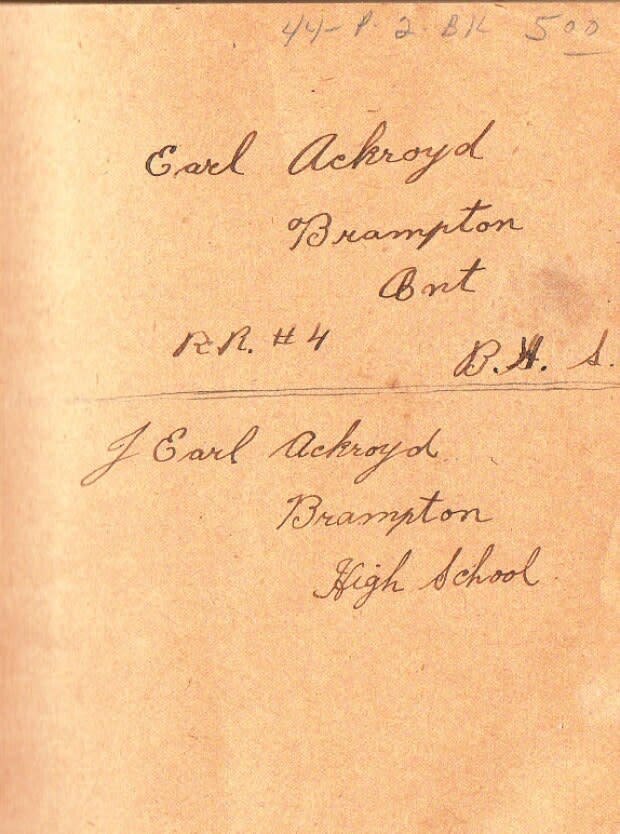 44- P. 2. BK 5 00
Earl Ackroyd
Brampton
Ont
R.R. #4 B.H.S.
J Earl Ackroyd
Brampton
High School